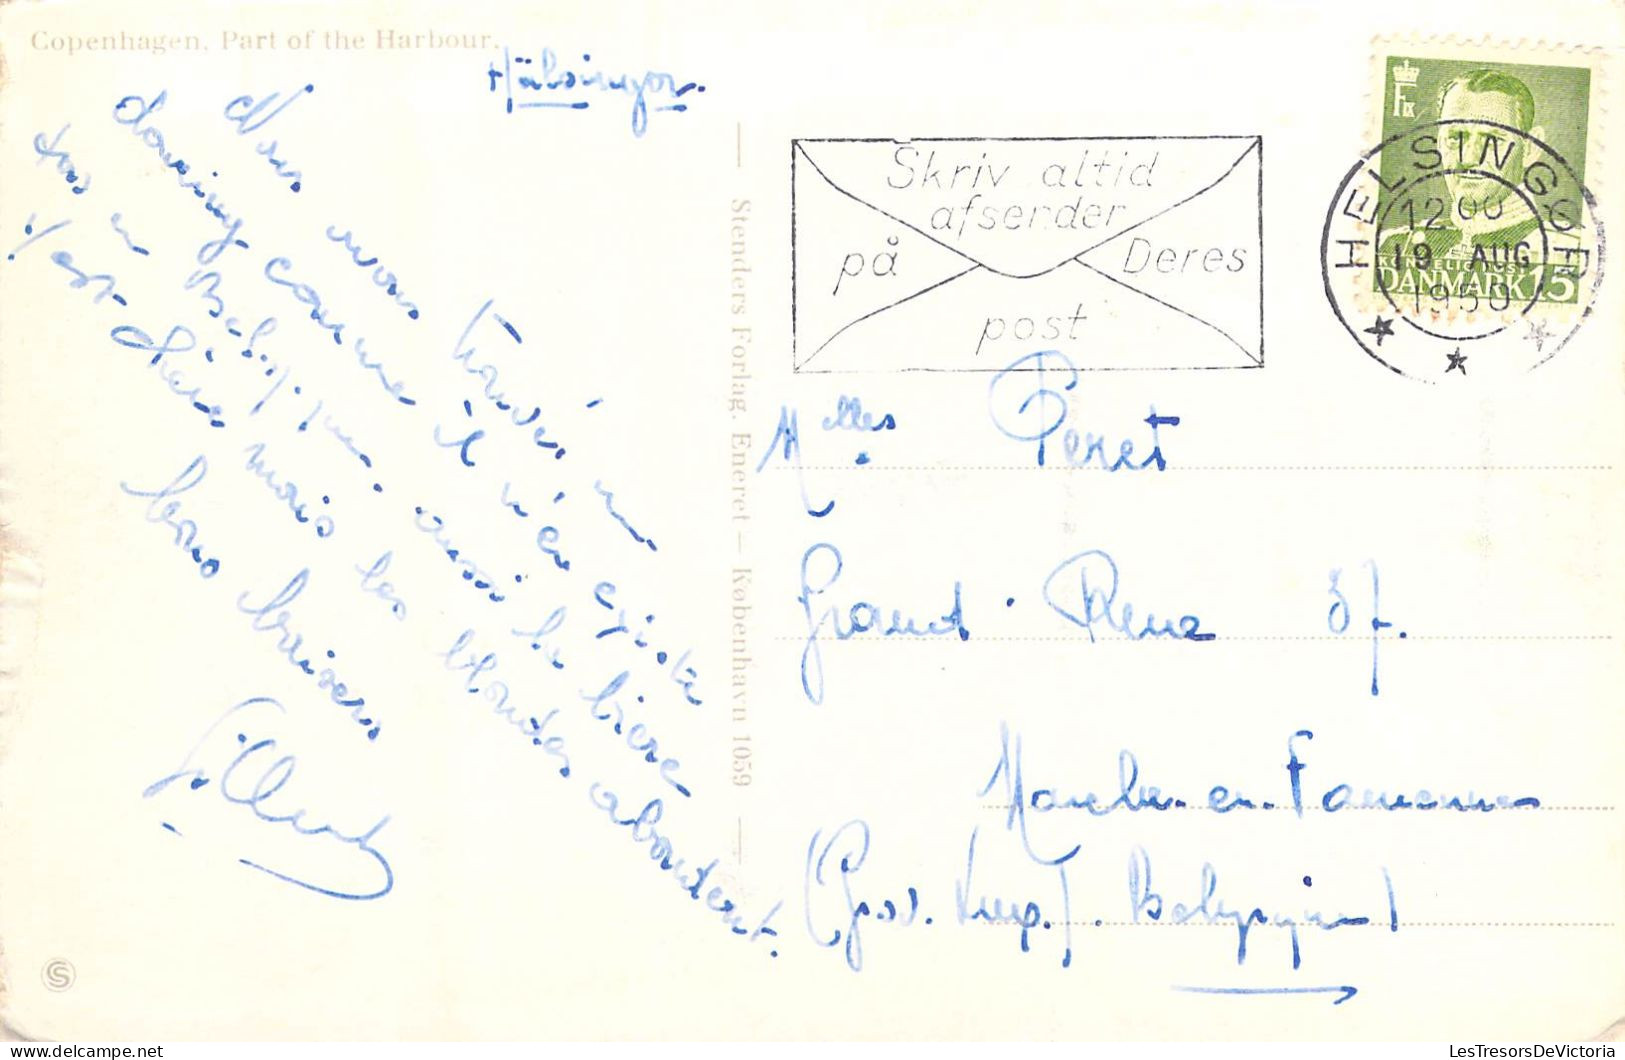 Copenhagen, Part of the Harbour.
Hälsingor.
Nous avons trouvé un
camping comme il n'en existe
pas en Belgique. aussi la bière
est chère mais les blondes abondent.
bons baisers
Stenders Forlag. Eneret — København 1059
S
Skriv altid
afsender
på Deres
post
HELSINGØR
1200
19 AUG
1950
F IX
KONGELIG POST
DANMARK 15
Melles Peret
Grand. Rue 37.
Marche-en-Famenne
(Prov. Lux). Belgique
LesTresorsDeVictoria